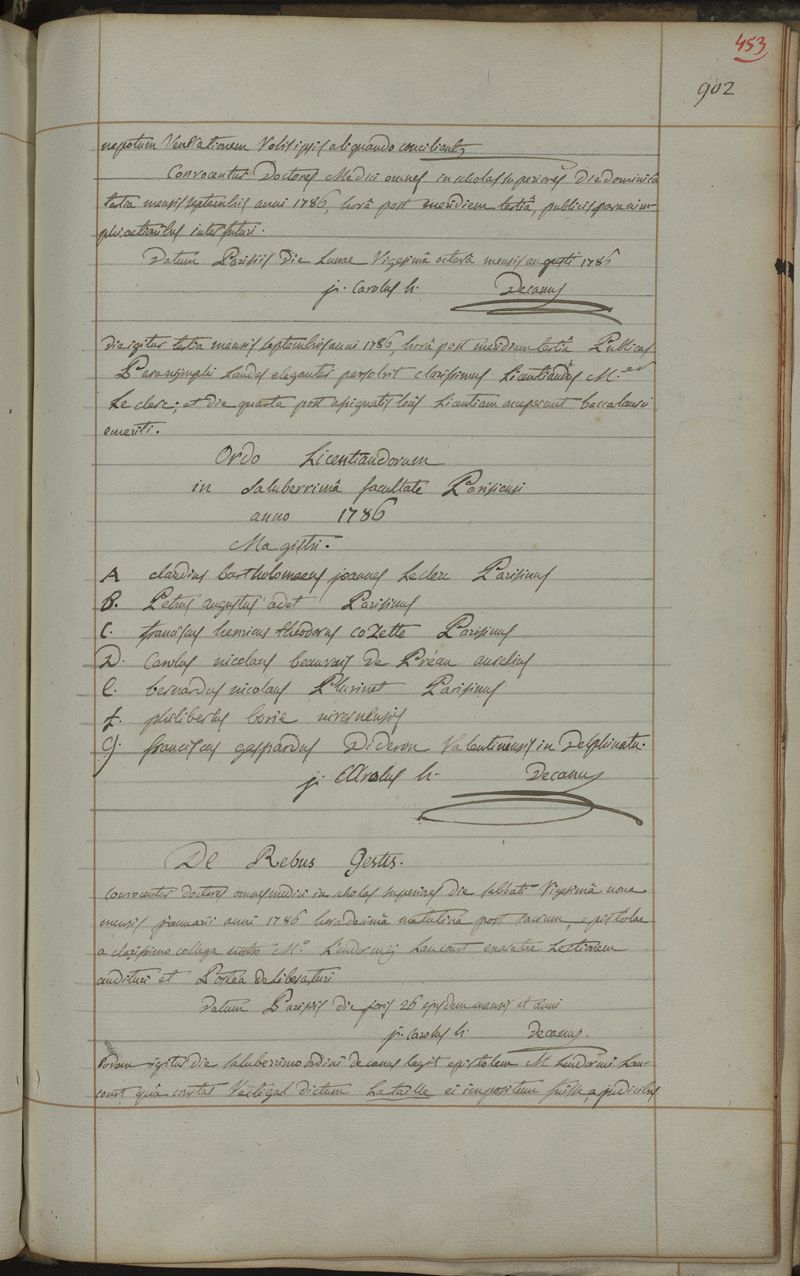 453
902
nepotum Venerationem Vobis ipsis aliquando concilient,
Convocentur Doctores Medici omnes in scholas superiores Die dominicâ
tertia mensis septembris anni 1786, horâ post meridiem tertiâ, publicis paranim-
phi actionibus inter futuri.
Datum Parisiis Die Lunae Vigesimâ octavâ mensis augusti 1786
j. Carolus h. Decanus
die igitur tertia mensis septembris anni 1786, horâ post meridiem tertiâ Publicas
Paranymphi Laudes eleganter persolvit clarissimus Licentiandus M.
Le clerc; et die quarta post assignatis locis Licentiam acceperunt baccalaurei
emeriti.
Ordo Licentiandorum
in Saluberrimâ facultate Parisiensi
anno 1786
Magistri.
A claudius bartholomaeus joannes Leclerc Parisinus
B. Petrus augustus adet Parisinus
C. franciscus henricus theodorus cozette Parisinus
D. Carolus nicolaus beauvais de Préau aurelius
E. bernardus nicolaus Pluvinet Parisinus
F. philibertus borie nivernensis
G. franciscus gaspardus Dideron Valentinensis in Delphinatu.
j. CArolus h. Decanus
De Rebus Gestis.
Convocentur doctores omnes medici in scholas superiores die sabbati Vigesimâ nona
mensis januarii anni 1786 hora decimâ matutina post sacrum, epistolae
a clarissimo collega nostro M.o Lendormij Laucourt exaratae Lectionem
audituri et Postea deliberaturi
Datum Parisiis die jovis 26 ejusdem mensis et anni
j. carolus h. Decanus.
Eodem igitur die saluberrimo ordini decanus legit epistolam M Lendormi Lau-
court quâ constat Vectigal dictum La taille ei impositum fuisse a judicibus